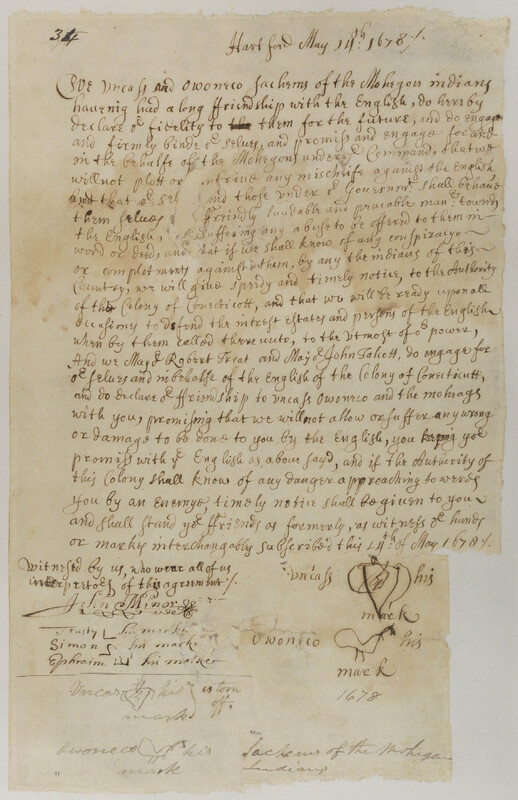 34
Hartford May 14th: 1678/.
We Uncass and Owoneco Sachems of the Mohegon indians
haveing had a long ffriendship with the English, do hereby
declare or fidelity to them for the future, and do engage
and firmly binde or selves, and promiss and engage for and
in the behalfe of the Mohegons under or Command, that we
will not plott or intrive any mischeife against the English
and that or sel and those under or Governmt shall behave
them selves ffriendly laudable and peaceable manr towards
the English, suffering any abuse to be offered to them in
word or deed, and that if we shall know of any conspiracye
or complotments against them, by any the indians of this
Country, we will give speedy and timely notice, to the Authority
of the Colony of Conecticott, and that we will be ready upon all
occasions to defend the interest estates and persons of the English
when by them called thereunto, to the utmost of or power,
And we Majr Robert Treat and Majr John Talcott, do engage for
or selves and in behalfe of the English of the Colony of Conecticutt,
and do declare or ffriendship to Uncass Owoneco and the moheags
with you, promising that we will not allow or suffer any wrong
or damage to be done to you by the English, you keeping yor
promiss with ye English as above sayd, and if the Authority of
this Colony shall know of any danger approaching towerds
you by an Enemye, timely notice shall be given to you
and shall stand yor ffriends as formerly, as witness or hands
or markes interchangably subscribed this 14th of May 1678/.
Witnessed by us, who wear all of us
interpretors of this agreement/.
John Minor
Trusty his marke
Simon his marke
Ephraim his marke
Uncass his
marck
Owoneco his
marck
1678
Uncas his is torn
mark off.
Owoneco his
mark
Sachems of the Mohegan
Indians